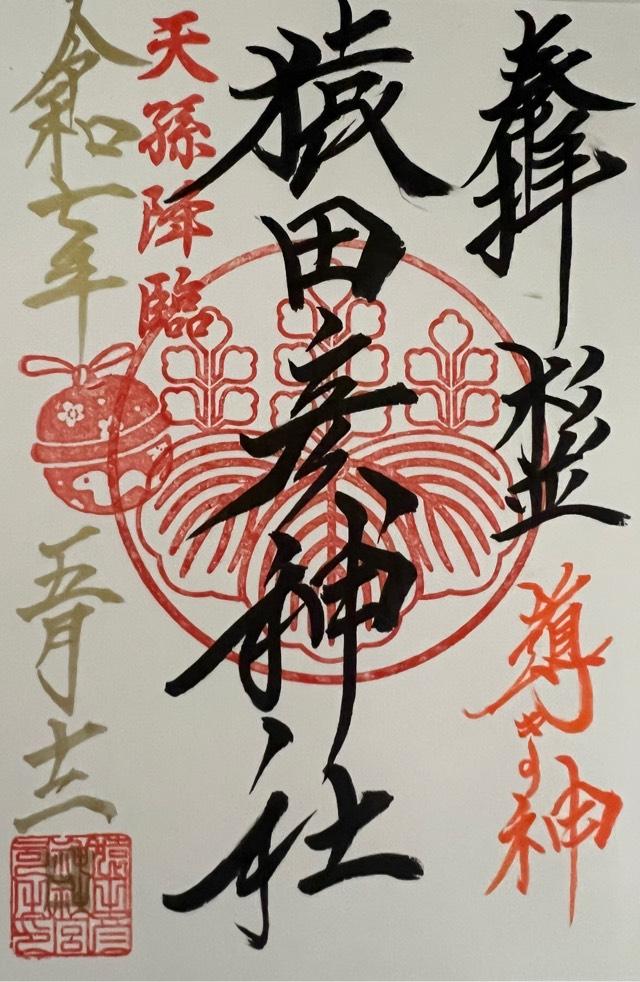 奉拝 杉並
導きの神
猿田彦神社
天孫降臨
令和七年 五月